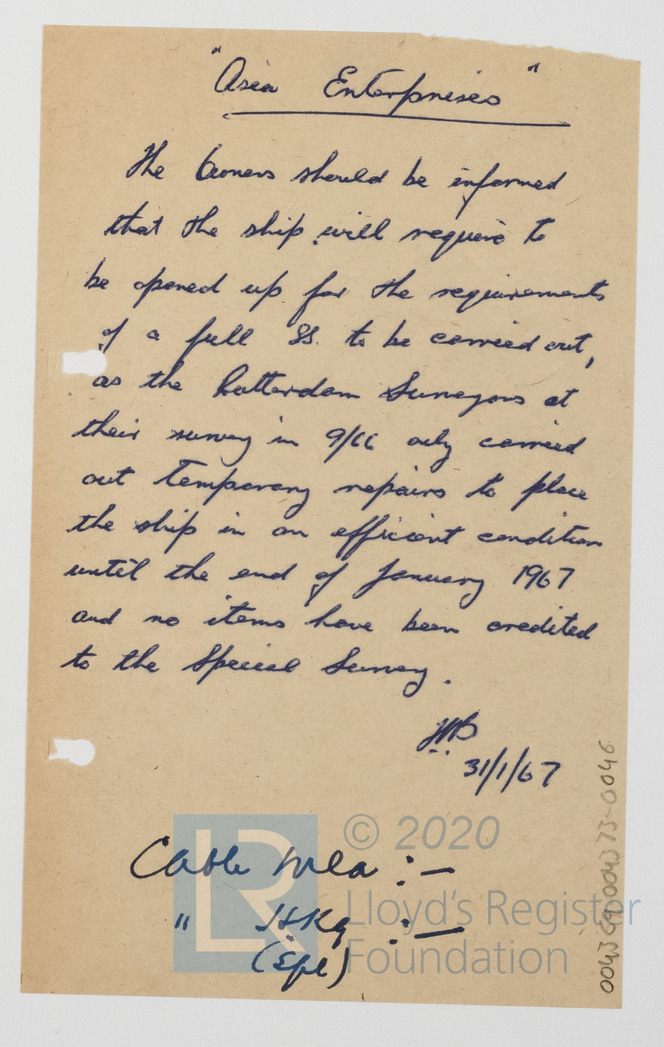 "Asia Enterprises"
The Owners should be informed
that the ship will require to
be opened up for the requirements
of a full SS. to be carried out,
as the Rotterdam Surveyors at
their survey in 9/66 only carried
out temporary repairs to place
the ship in an efficient condition
until the end of January 1967
and no items have been credited
to the Special Survey.
31/1/67
Cable Mla :-
" HKg :-
(Spl)
© 2020
LR
Lloyd's Register
Foundation